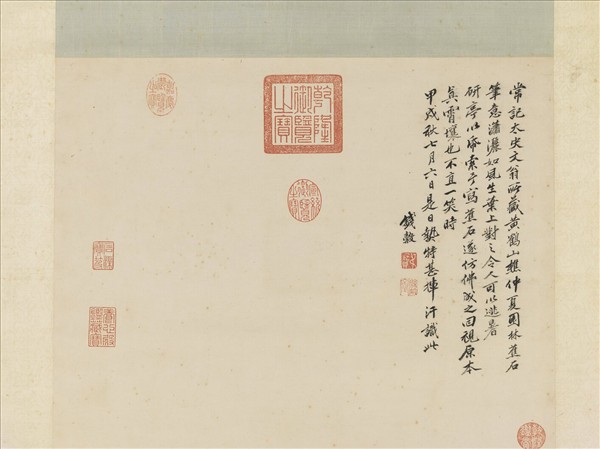 常記太史文翁所藏黃鶴山樵仲夏園林蕉石
筆意瀟灑如風生葉上對之令人可以逃暑
研亭以紙索予寫蕉石遂仿佛成之回視原本
真霄壤也不直一笑時
甲戌秋七月六日是日熱特甚揮汗識此
錢穀
乾隆御覽之寶